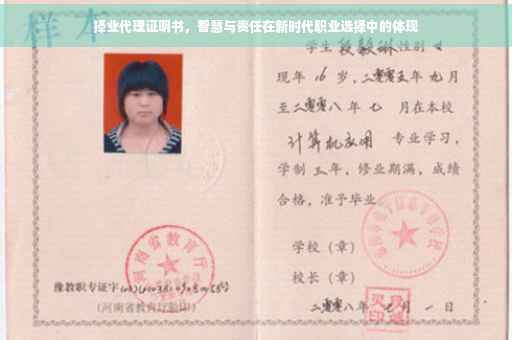 择业代理证明书，智慧与责任在新时代职业选择中的体现
样本
学生段毅琳性别女
现年 16 岁，二零零五年九月
至二零零八年七 月在本校
计算机应用 专业学习，
学制三年，修业期满，成绩
合格，准予毕业
学校（章）
校长（章）
二零零八年 月 一日
河南省教育厅
豫教职专证字
(河南省教育厅验印)